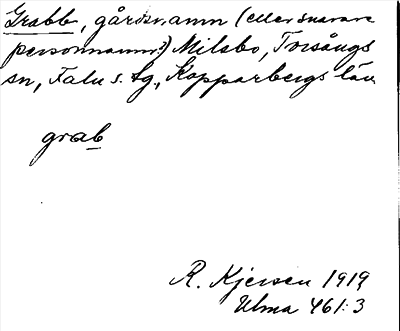 Grabb, gårdsnamn (eller snarare
personnamn?) Milsbo, Torsångs
sn, Falu s. tg., Kopparbergs län
grab
R. Kjersen 1919
Ulma 461:3